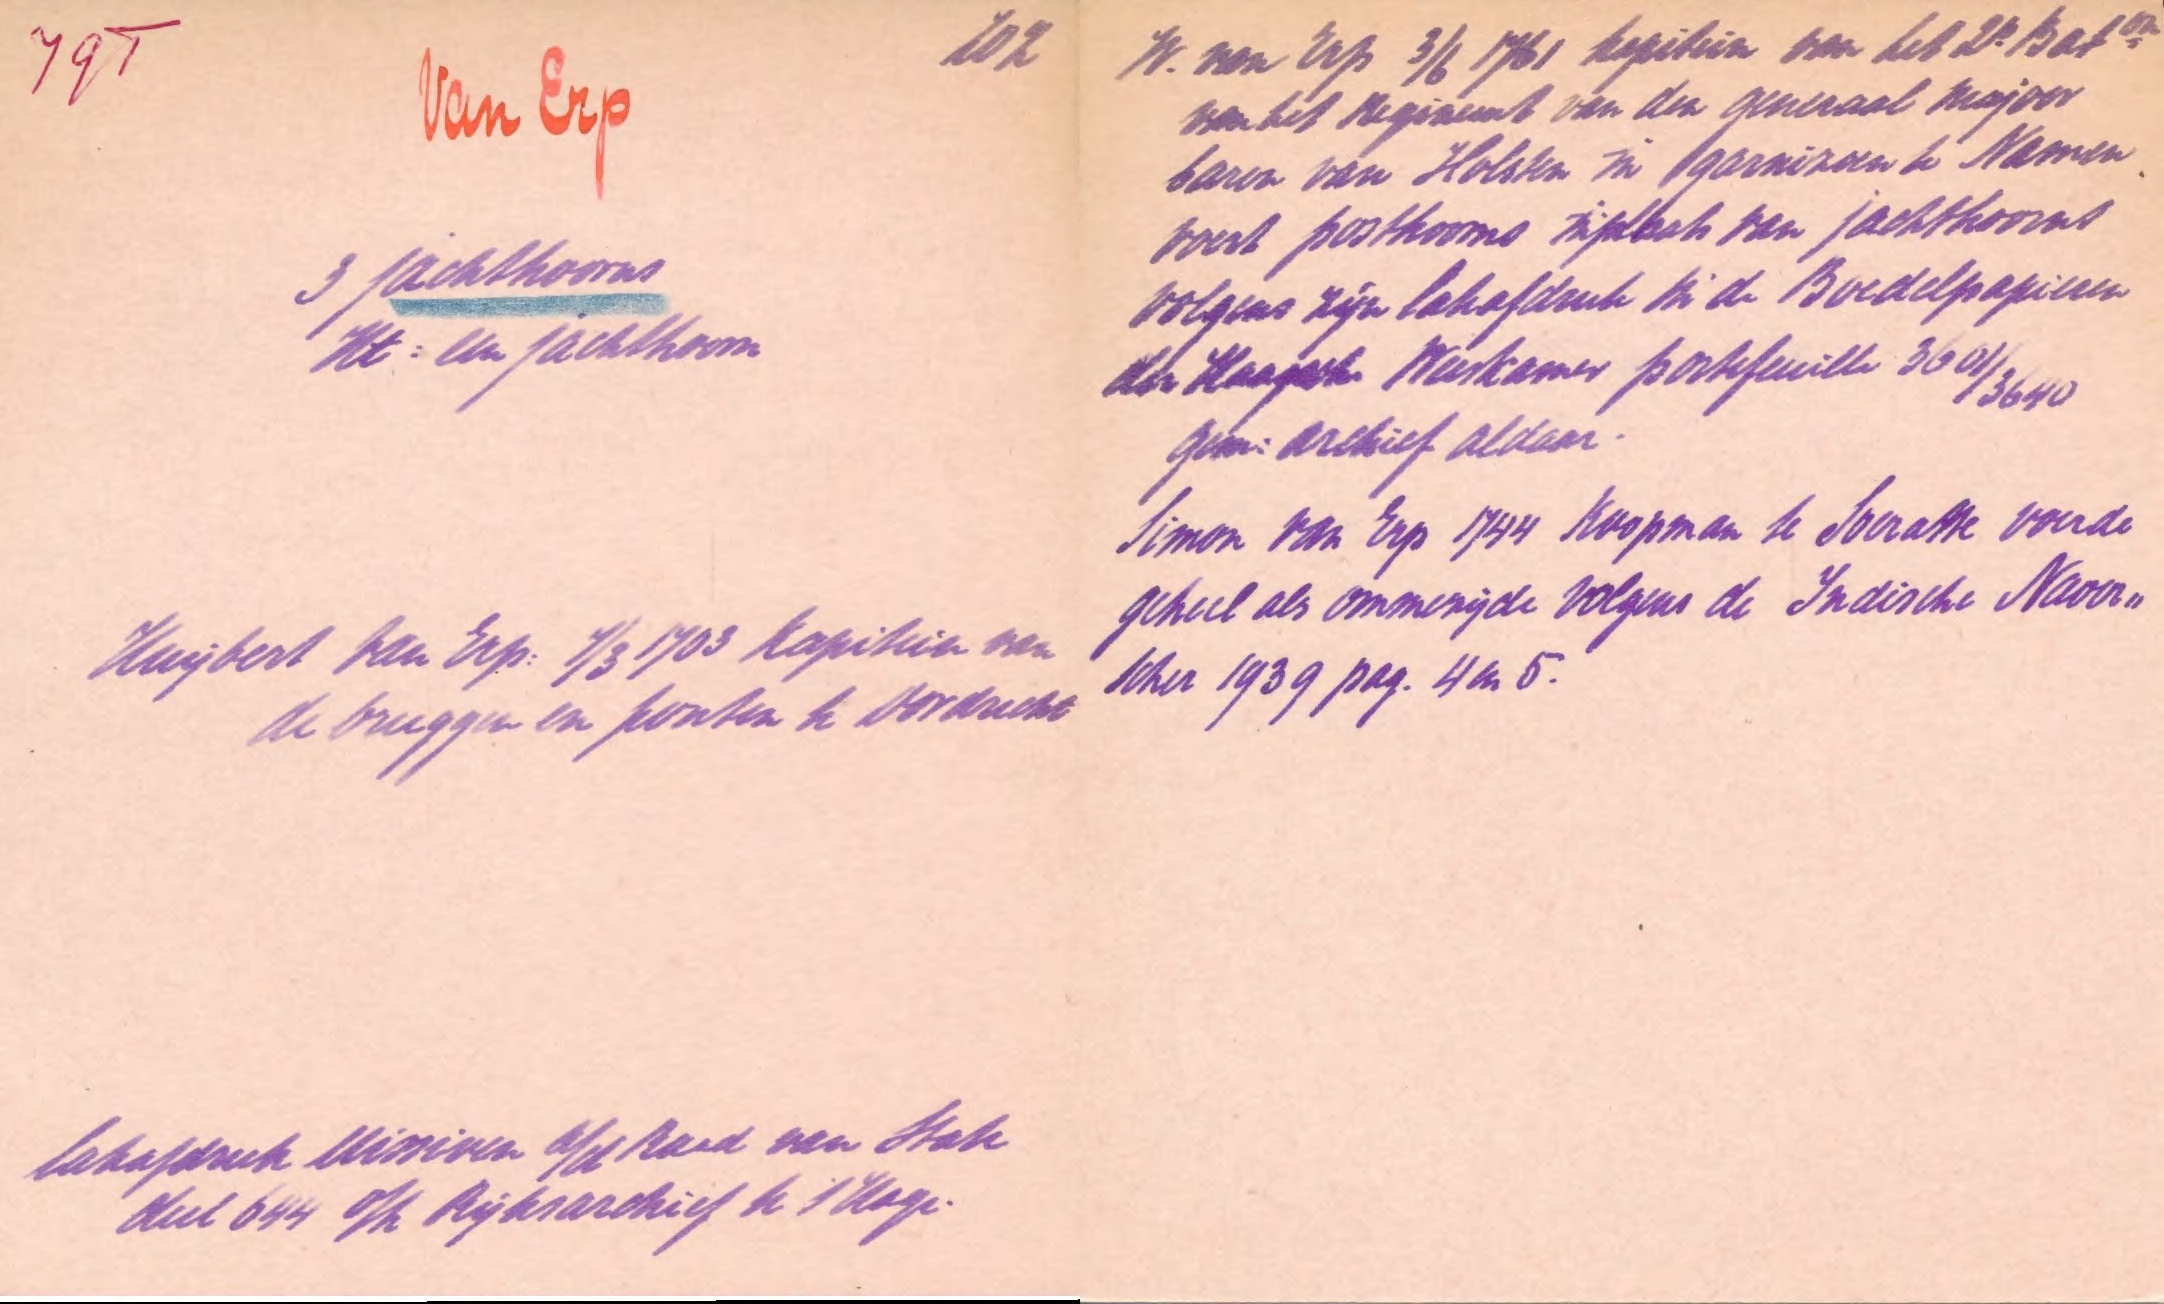 79T
Van Erp
202
3 jachthoorns
Ht: een jachthoorn
Huijbert van Erp: 1/3 1703 Kapitein van
de bruggen en ponten te Dordrecht
lakafdruk Missiven a/d Raad van State
deel 644 o/h Rijksarchief te 's Hage.
W. van Erp 3/6 1761 kapitein van het 2e Baton
van het Regiment van den generaal majoor
baron van Holsten in garnizoen te Namen
voert posthoorns inplaats van jachthoorns
volgens zijn lakafdruk in de Boedelpapieren
der Haagsche Weeskamer portefeuille 3601/3640
gem: archief aldaar.
Simon van Erp 1744 Koopman te Soeratte voerde
geheel als ommezijde volgens de Indische Navor„
scher 1939 pag. 4 en 5.